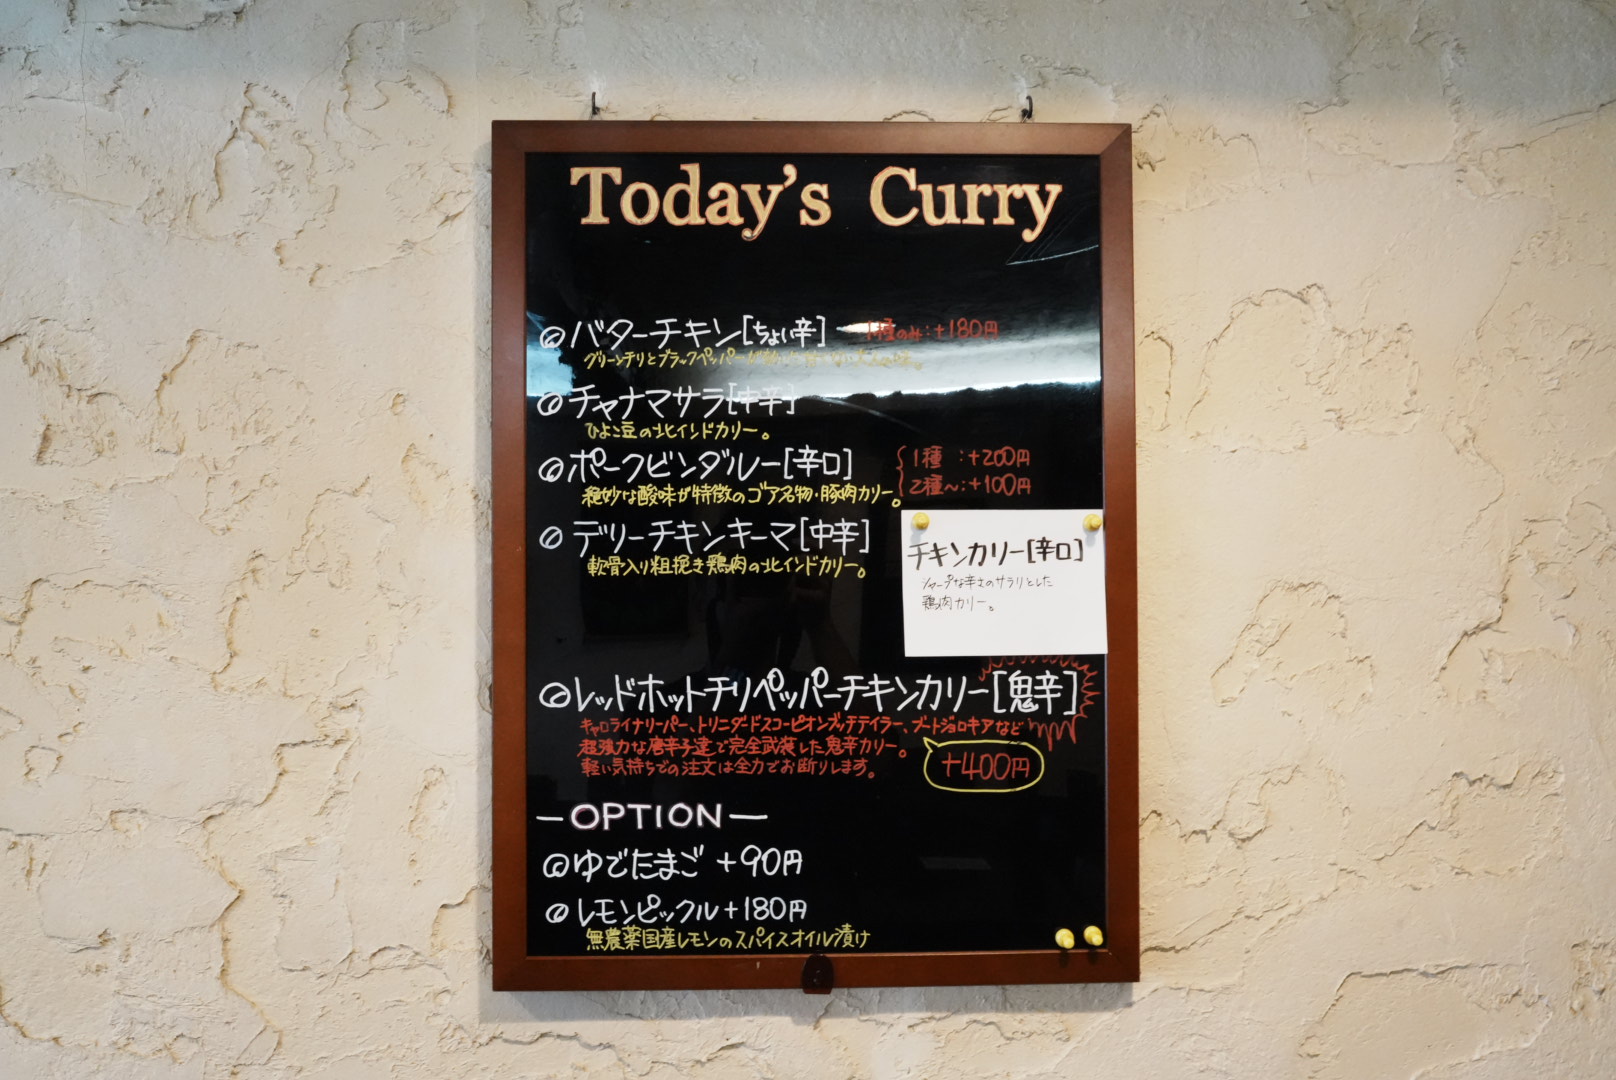 Today's Curry
◎バターチキン[ちょい辛] 1種のみ:+180円
グリーンチリとブラックペッパーが
◎チャナマサラ[中辛]
ひよこ豆の北インドカリー。
◎ポークビンダルー[辛口] 1種 :+200円
2種〜:+100円
絶妙な酸味が特徴のゴア名物・豚肉カリー。
◎デリーチキンキーマ[中辛]
軟骨入り粗挽き鶏肉の北インドカリー。
チキンカリー[辛口]
シャープな辛さのサラリとした
鶏肉カリー。
◎レッドホットチリペッパーチキンカリー[鬼辛]
キャロライナリーパー、トリニダードスコーピオンブッチテイラー、ブートジョロキアなど
超強力な唐辛子達で完全武装した鬼辛カリー。
軽い気持ちでの注文は全力でお断りします。
+400円
—OPTION—
◎ゆでたまご +90円
◎レモンピックル+180円
無農薬国産レモンのスパイスオイル漬け